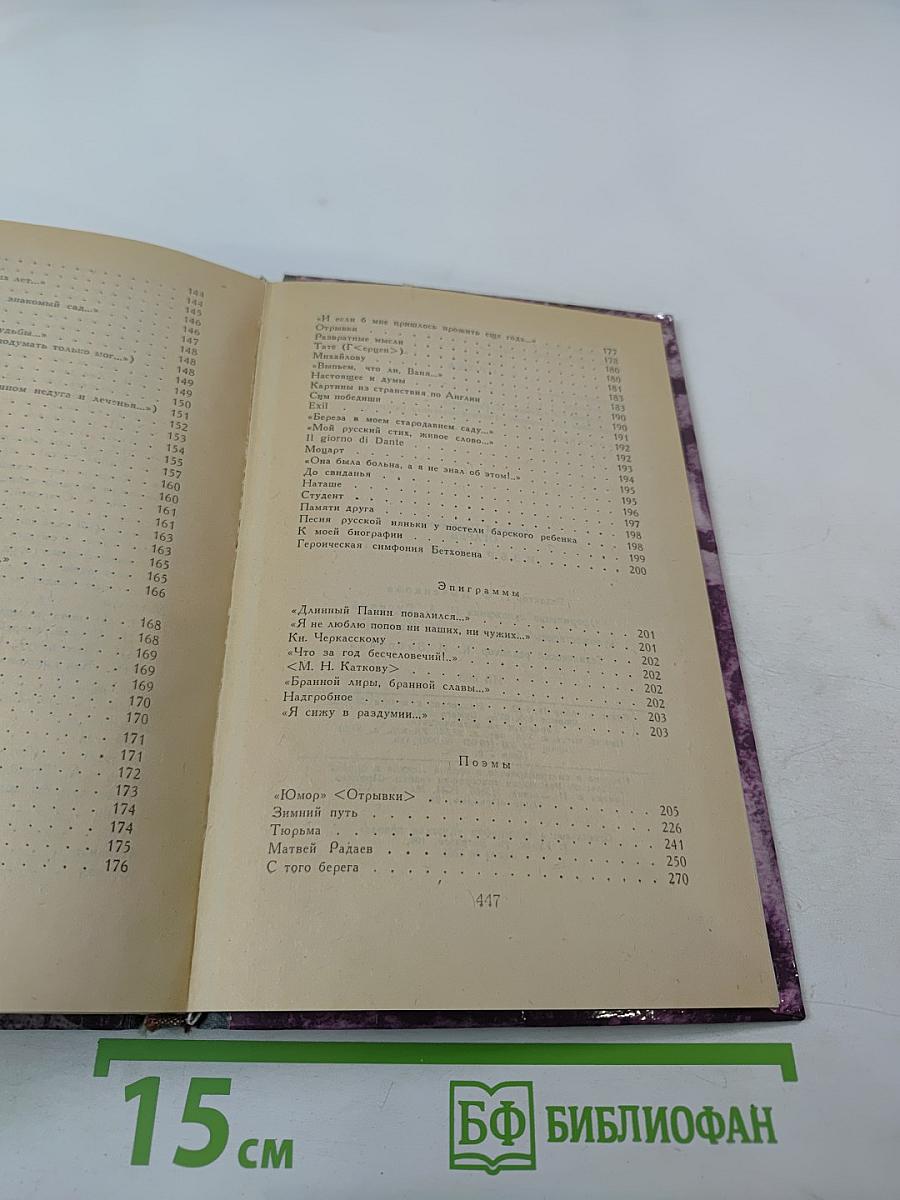 х лет...»
знакомый сад...»
удьбы...»
подумать только мог...»)
нном недуга и леченья...»)
144
144
145
146
146
147
148
148
148
149
149
150
151
152
153
154
155
157
160
160
161
161
163
163
165
165
166
168
168
169
169
169
170
170
171
171
172
173
174
174
175
176
«И если б мне пришлось прожить еще года...» 177
Отрывки 178
Развратные мысли 180
Тате (Г<ерцен>) 180
Михайлову 181
«Выпьем, что ли, Ваня...» 183
Настоящее и думы 183
Картины из странствия по Англии 190
Сим победиши 190
Exil 191
«Береза в моем стародавнем саду...» 192
«Мой русский стих, живое слово...» 192
Il giorno di Dante 193
Моцарт 194
«Она была больна, а я не знал об этом!..» 195
До свиданья 195
Наташе 196
Студент 197
Памяти друга 198
Песня русской няньки у постели барского ребенка 198
К моей биографии 199
Героическая симфония Бетховена 200
Эпиграммы
«Длинный Панин повалился...» 201
«Я не люблю попов ни наших, ни чужих...» 201
Кн. Черкасскому 202
«Что за год бесчеловечий!..» 202
<М. Н. Каткову> 202
«Бранной лиры, бранной славы...» 202
Надгробное 203
«Я сижу в раздумии...» 203
Поэмы
«Юмор» <Отрывки> 205
Зимний путь 226
Тюрьма 241
Матвей Радаев 250
С того берега 270
447
15 см
БФ БИБЛИОФАН